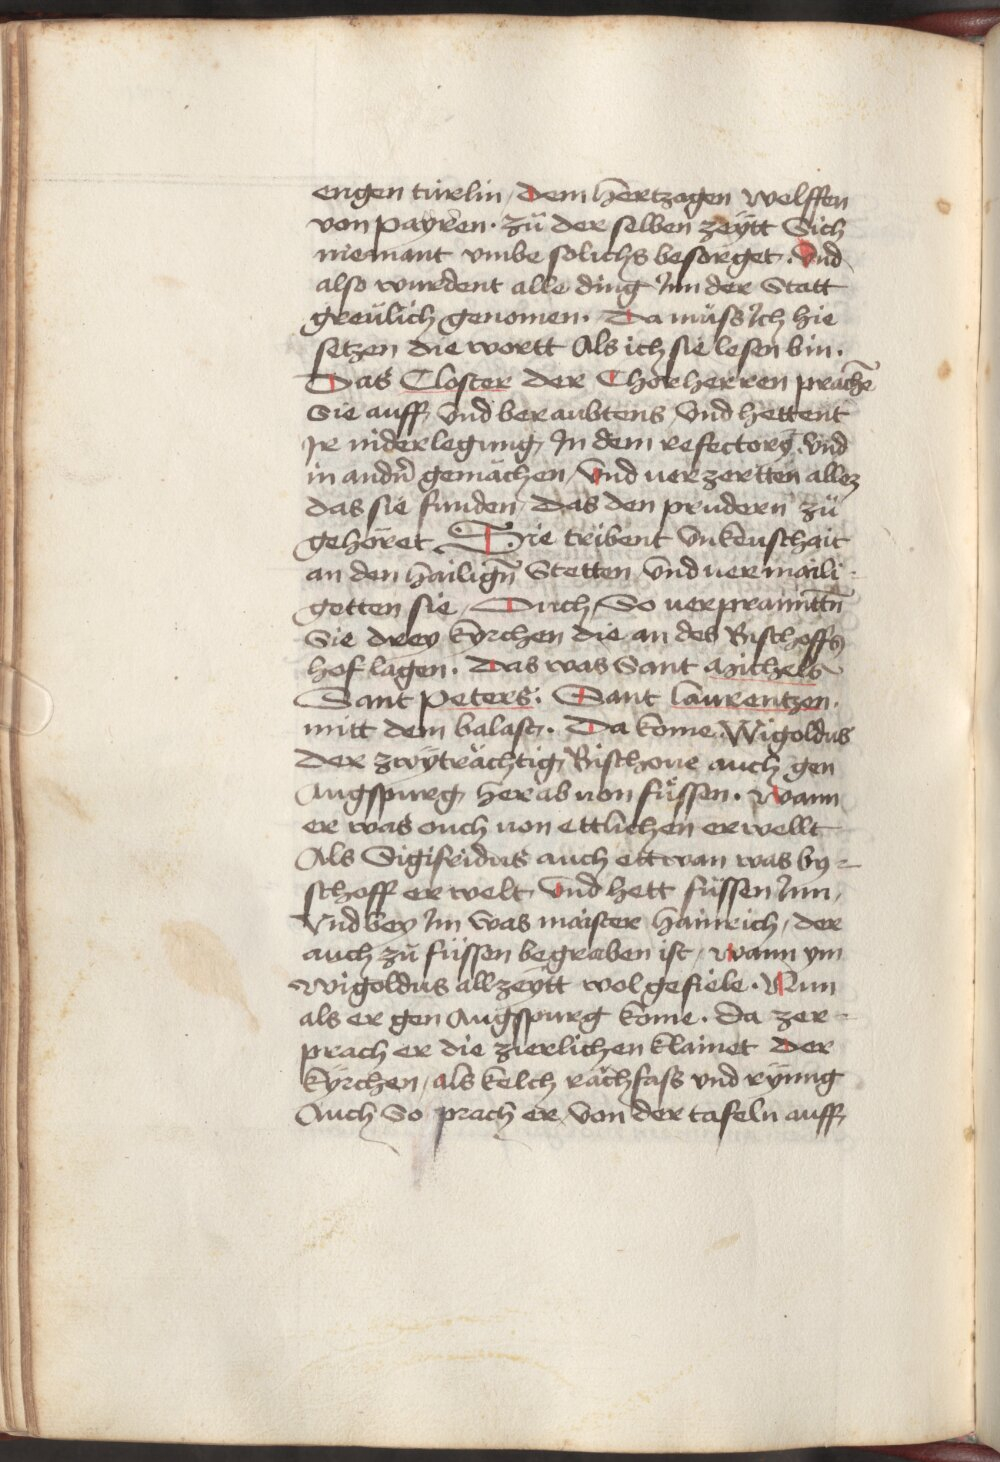 engen türlin, dem hertzogen welffen
von payren. zů der selben zeÿtt Sich
niemant vmbe solichs besorget. Vnd
also wurdent alle ding Jnn der Statt
greülich genomen. Da můss Jch hie
setzen die wortt Als ich sie lesen bin.
Das Closter der Chorherren prachē
Sie auff, Vnd beraubtens Vnd hettent
Jr niderlegung, Jn dem refectorÿ. Vnd
in andn̄ gemächen, Vnd uerzertten allez
das sie funden, Das den prudern zů
gehöret. Sie tribent Vnkeuschait
an den hailign̄ Stetten Vnd uermaili
getten sie, Auch, So uerpranttn̄
Sie drey kyrchen die an des Bischoffs
hof lagen. Das was Sant Michels
Sant Peters. Sant laurentzen.
mitt dem balast. Da kome Wigoldus
der zwÿträchtig Bischoue auch gen
Augspurg herab uon füssen. Wann
er was ouch uon ettlichen erwellt
Als Sigifridus auch ettwan was by-
schoff erwelt Vnd hett füssen Jnn,
Vnd bey Jm was maister hainrich, der
auch zů füssen begraben ist, wann ym
wigoldus allzeÿtt wolgefiele. Nun
als er gen Augspurg kome. da zer-
prach er die zierlichen klainet Der
kÿrchen, als kelch rächfass vnd rÿnng
Auch So prach er, Von der tafeln auff,